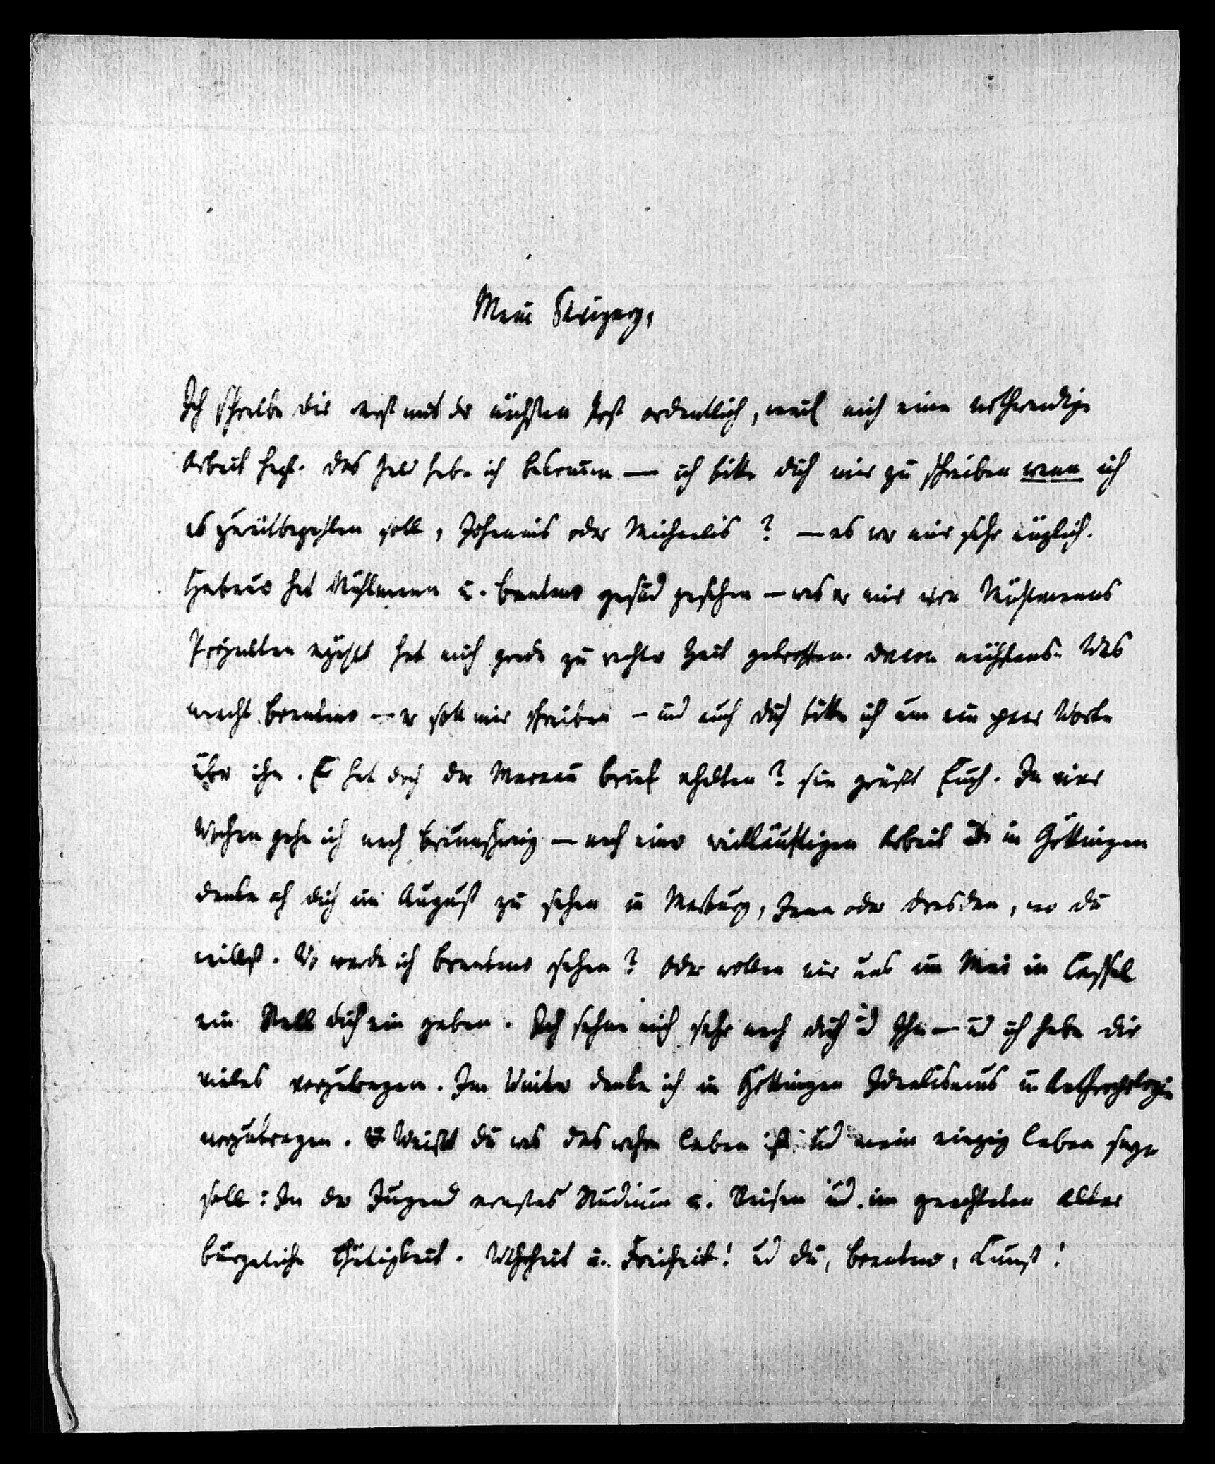 Mein Savigny,
Ich schreibe dir erst mit der nächsten Post ordentlich, weil mich eine nothwendige
Arbeit Das Geld habe ich bekomen — ich bitte dich mir zu schreiben wenn ich
es zurükbezahlen soll, Johannis oder Michaelis? — es war mir sehr nüzlich.
hat Kuhlmann u. Brentano gesund gesehen — was er mir von Kuhlmanns
Projekten erzählt hat mich grade zu rechter Zeit getroffen. Davon nächstens. Was
macht Brentano — er soll mir schreiben — und auch dich bitte ich um ein paar Worte
über ihn. Er hat doch der Mereau Brief erhalten? sie grüßt Euch. In vier
Wochen gehe ich nach Braunschweig — nach einer weitläuftigen Arbeit in Göttingen
denke ich dich im August zu sehen in Marburg, Jena oder Dresden, wo du
willst. Wo werde ich Brentano sehen? Oder wollen wir uns im Mai in Cassel
ein Stell dich ein geben. Ich sehne mich sehr nach dich ud Ihn — ud ich habe dir
vieles vorzutragen. Im Winter denke ich in Göttingen Idealismus u Anthropologie
vorzutragen. Weißt du was das wahre Leben ist ud mein einzig Leben seyn
soll: In der Jugend ernstes Studium u. Reisen ud. im Alter
bürgerliche Thätigkeit. Wahrheit u. Freiheit! ud du, Brentano, Kunst!